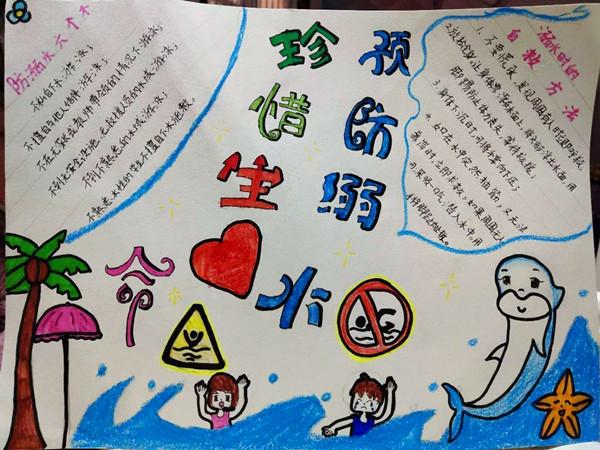 珍惜生命
预防溺水
防溺水六个不
不私自下水游泳;
不擅自与他人结伴游泳;
不在无家长或教师带领的情况下游泳;
不到无安全设施、无救援人员的水域游泳;
不到不熟悉的水域游泳;
不熟悉水性的学生不擅自下水施救。
溺水时的
自救方法
1. 不要慌张,发现周围有人时立即呼救
2. 放松全身,让身体漂浮在水面上,将头部浮出水面,用
脚踢水,防止体力丧失,等待救援
3. 身体下沉时,可将手掌向下压;
4. 如果在水中突然抽筋,又无法
靠岸时,立即求救。如果周围无人
可深吸一口气,潜入水中。用